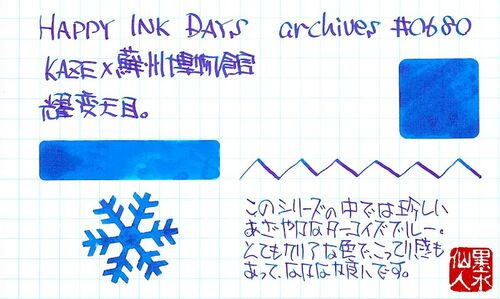 HAPPY INK DAYS archives #0680
KAZE×蘇州博物館
耀変天目。
このシリーズの中では珍しい
あざやかなターコイズブルー。
とてもクリアな色で、こってり感も
あって、なかなか良いです。
墨水
仙人